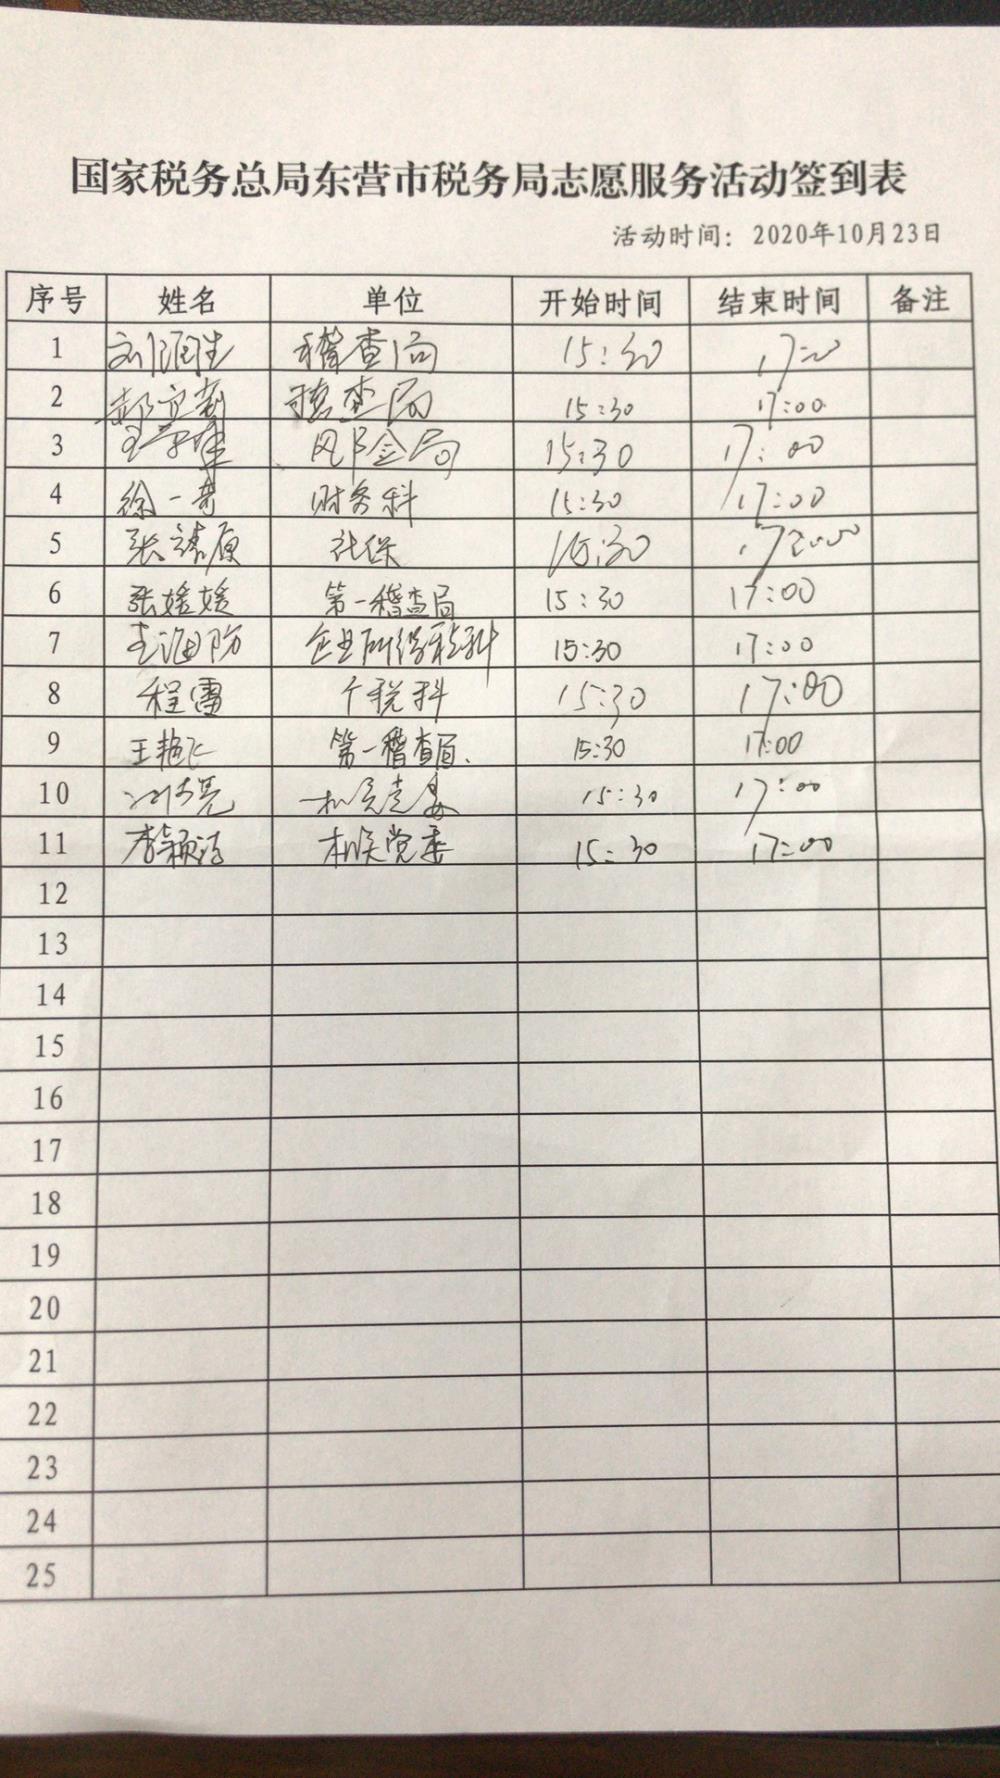 国家税务总局东营市税务局志愿服务活动签到表
活动时间：2020年10月23日
序号 姓名 单位 开始时间 结束时间 备注
1 稽查局 15:30
2 稽查局 15:30 17:00
3 局 15:30 17:00
4 徐一 财务科 15:30 17:00
5 张 原 社保 17:00
6 张媛媛 第一稽查局 15:30 17:00
7 企业所得税科 15:30 17:00
8 程雷 个税科 15:30 17:00
9 王艳飞 第一稽查局 15:30 17:00
10 机关党委 15:30 17:00
11 李颖 机关党委 15:30 17:00
12
13
14
15
16
17
18
19
20
21
22
23
24
25